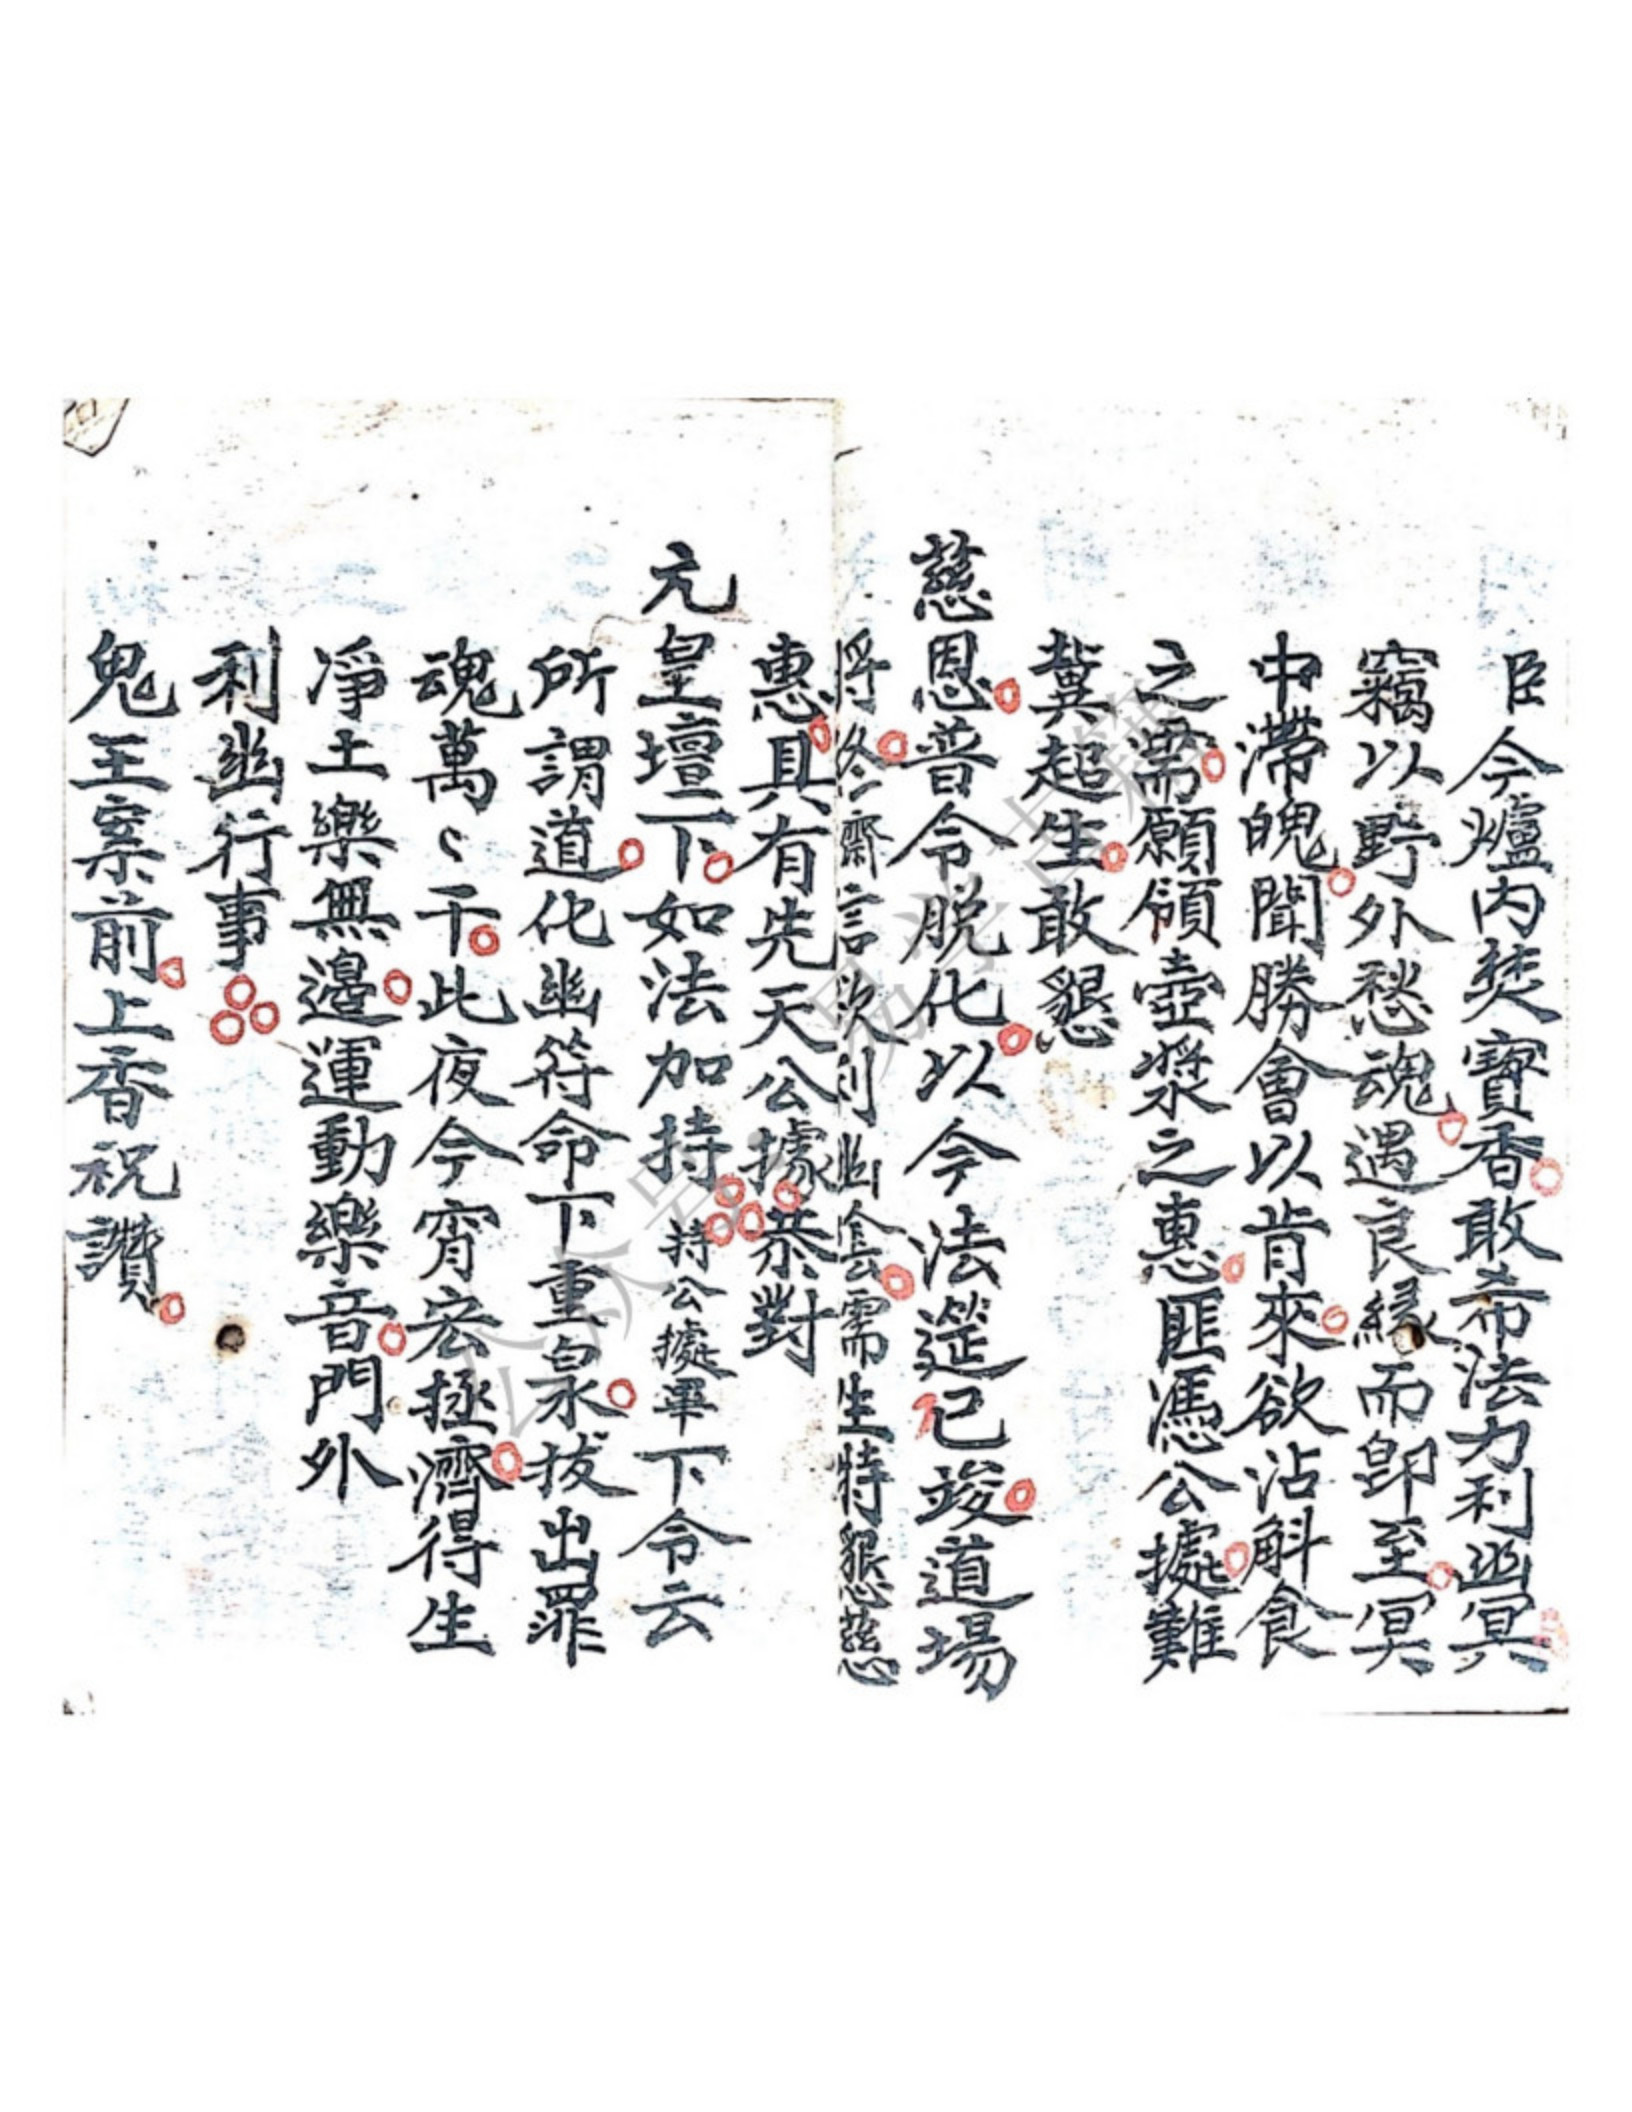 臣今爐內焚寶香敢希法力利幽冥
竊以野外愁魂遇良緣而卽至冥
中滯魄聞勝會以肯來欲沾斛食
之需願領壺漿之惠匪憑公據難
冀超生敢懇
慈恩普令脱化以今法筵已竣道場
將終齋言欲利幽陰需生特懇慈
惠具有先天公據恭對
元皇壇下如法加持持公據畢下令云
所謂道化幽符命下重泉拔出罪
魂萬〻千此夜今宵宏拯濟得生
淨土樂無邊運動樂音門外
利幽行事
鬼王案前上香祝讚
公众号：易学古籍